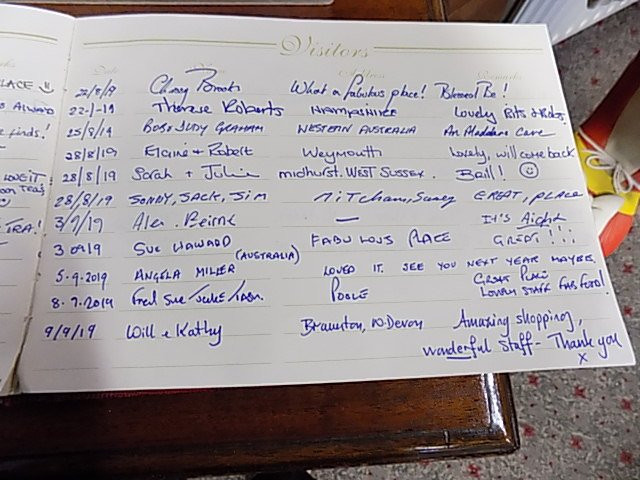 PLACE
Visitors
Date Address Remarks
22/8/19 Cherry Brooks What a fabulous place! Blessed Be!
22-1-19 Therese Roberts HAMPSHIRE Lovely Bits & Bobs,
25/8/19 BOB & JUDY GRAHAM WESTERN AUSTRALIA An Aladdins Cave
finds!
28/8/19 Elaine & Robert Weymouth Lovely, will come back
LOVE IT
28/8/19 Sarah + Julian midhurst. WEST SUSSEX. Brill!
28/8/19 SONNY, JACK, JIM MiTCHAM, Surrey GREAT, PLACE
TRA!
3/9/19 Alex. Beirne — It's Aight
3 09 19 SUE HAWARD FABULOUS PLACE GREAT!!!
5.9.2019 ANGELA MILLER (AUSTRALIA) LOVED IT. SEE YOU NEXT YEAR MAYBE.
8.9.2019 Fred Sue/ POOLE Great Place
Lovely STAFF FAB FOOD!
9/9/19 Will & Kathy Braunton, N. Devon Amazing shopping,
wonderful staff - Thank you
x